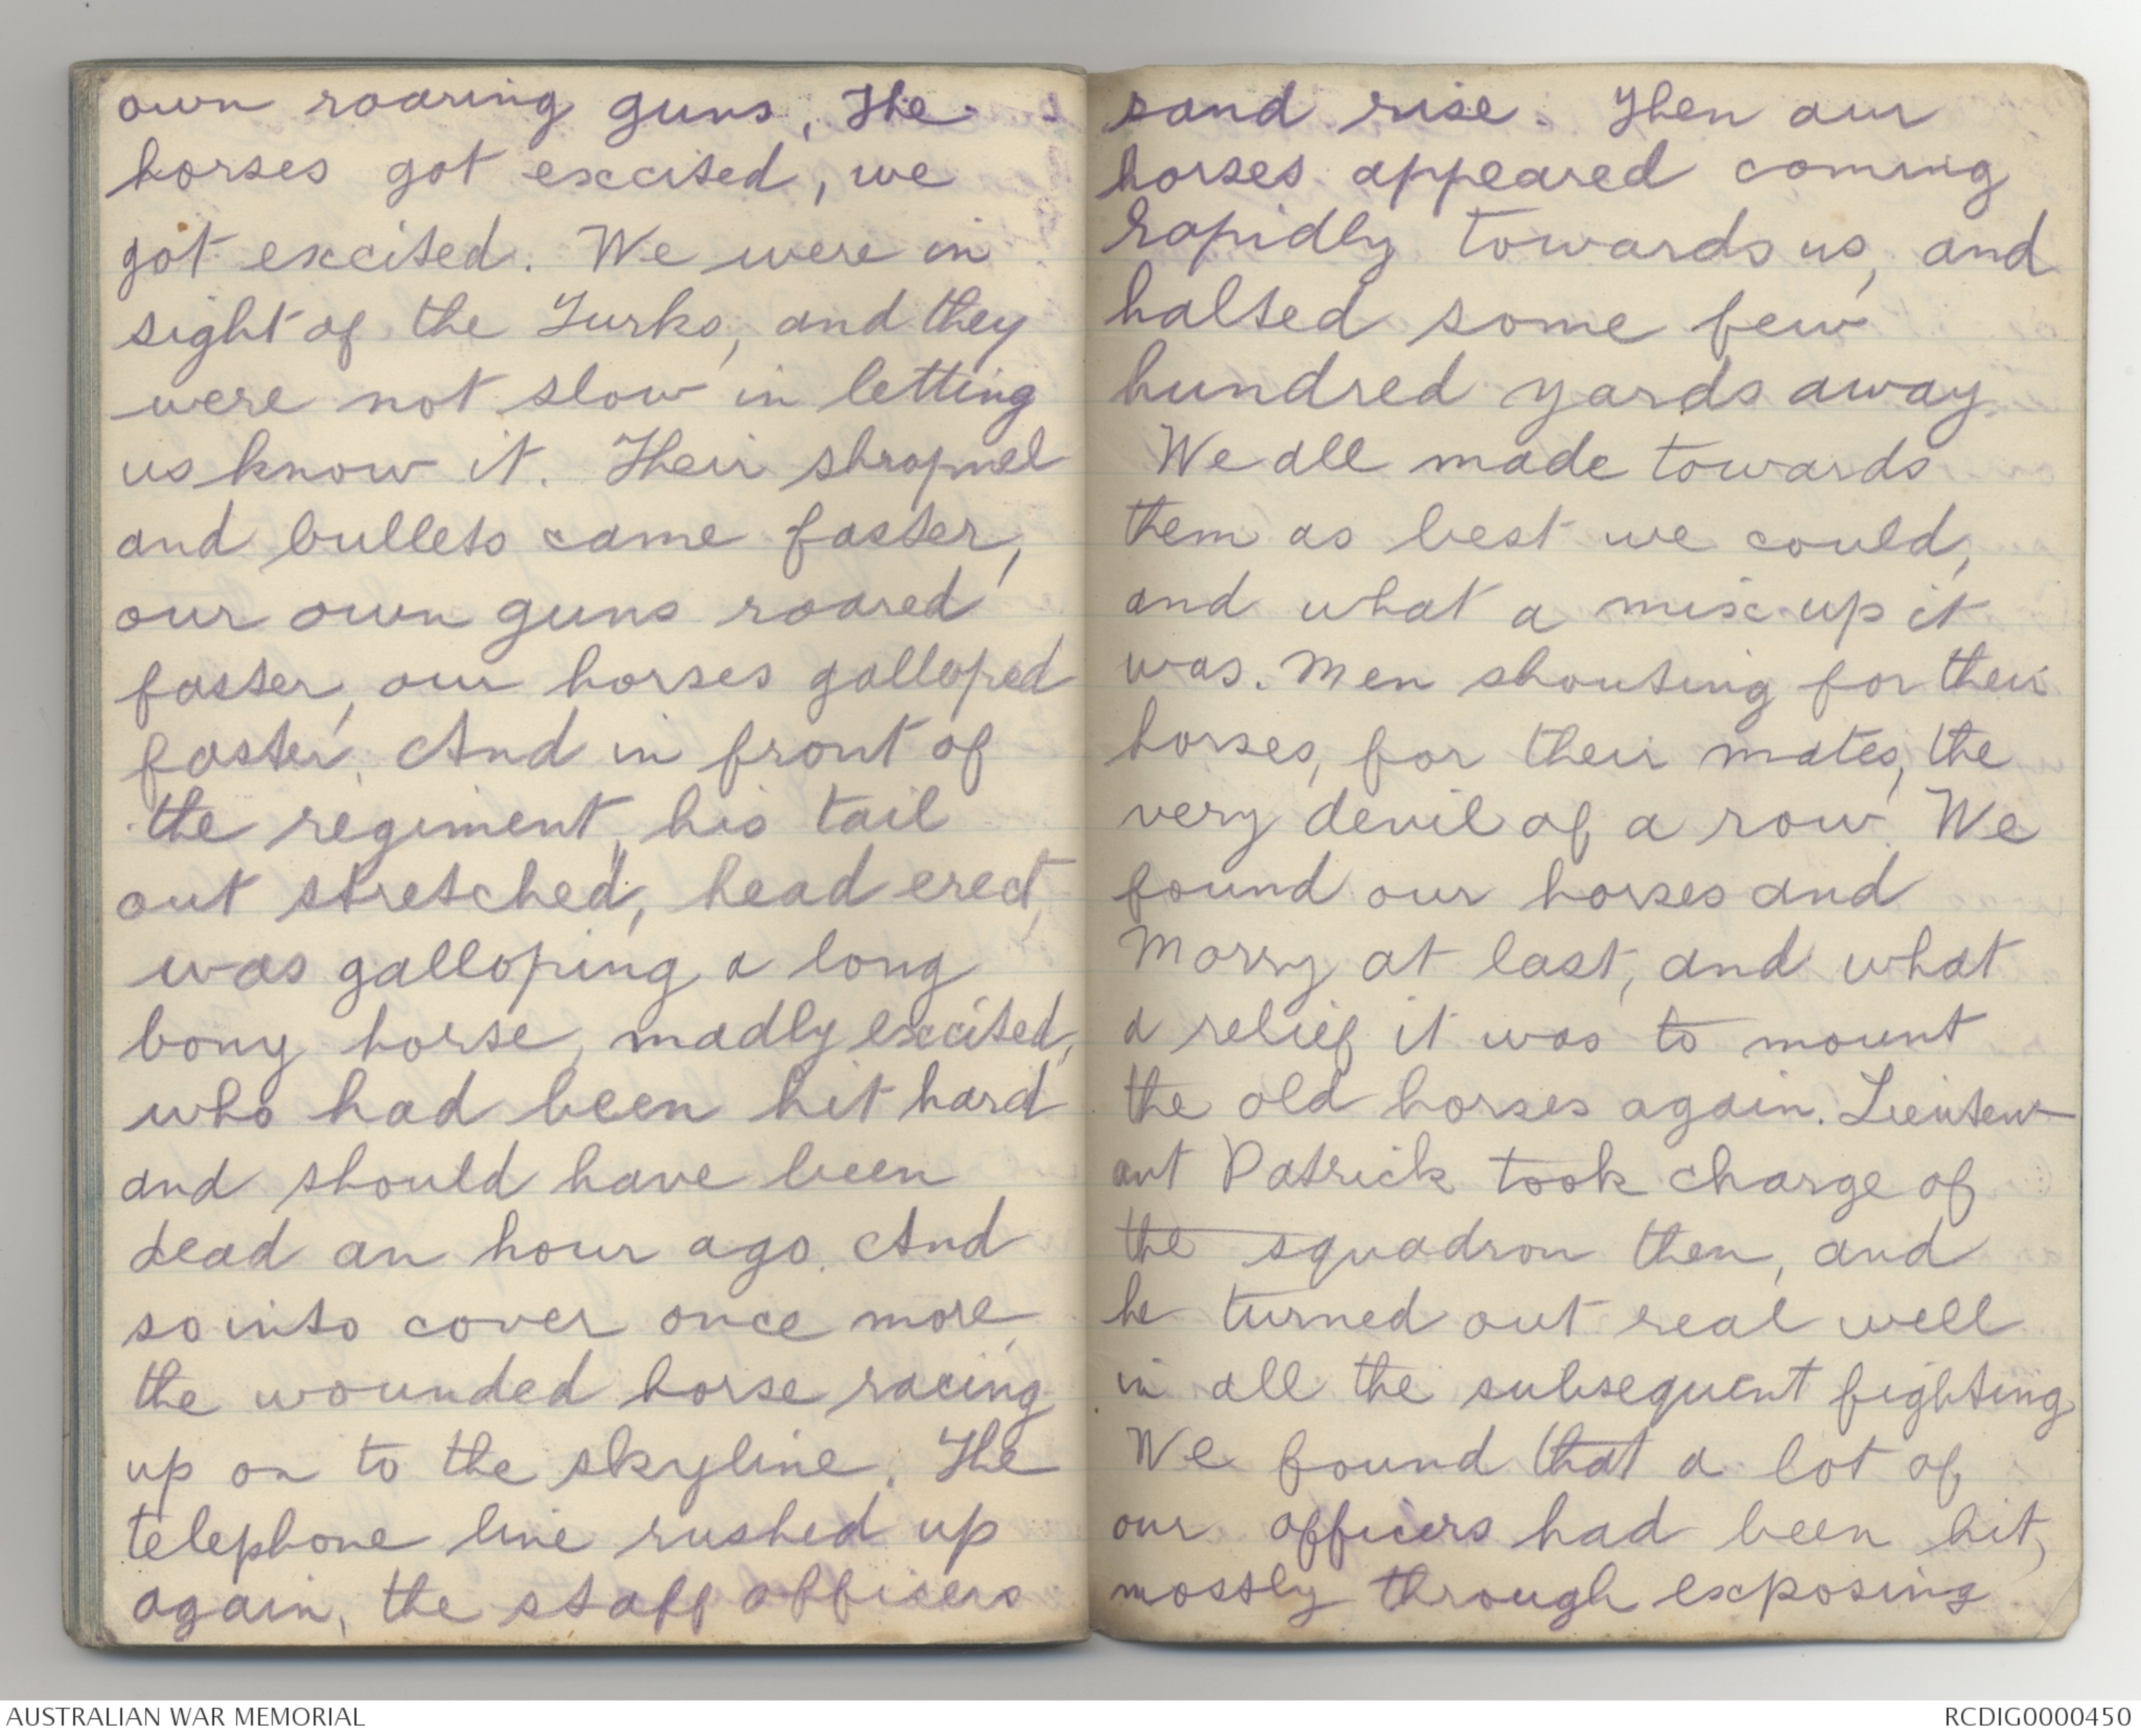 own roaring guns, The
horses got excited, we
got excited. We were in
sight of the Turks, and they
were not slow in letting
us know it. Their shrapnel
and bullets came faster,
our own guns roared
faster, our horses galloped
faster. And in front of
the regiment, his tail
out stretched, head erect,
was galloping a long
bony horse, madly excited,
who had been hit hard
and should have been
dead an hour ago. And
so into cover once more,
the wounded horse racing
up on to the skyline. The
telephone line rushed up
again, the staff officers
sand rise. Then our
horses appeared coming
rapidly towards us, and
halted some few
hundred yards away.
We all made towards
them as best we could,
and what a mix up it
was. Men shouting for their
horses, for their mates, the
very devil of a row. We
found our horses and
Morry at last, and what
a relief it was to mount
the old horses again. Lieuten-
ant Patrick took charge of
the squadron then, and
he turned out real well
in all the subsequent fighting
We found that a lot of
our officers had been hit,
mostly through exposing
AUSTRALIAN WAR MEMORIAL
RCDIG0000450